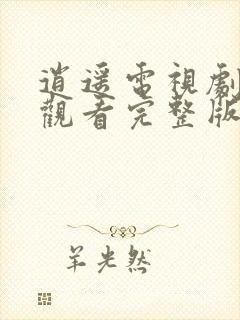 逍遥電視劇
觀看完整版
羊光然